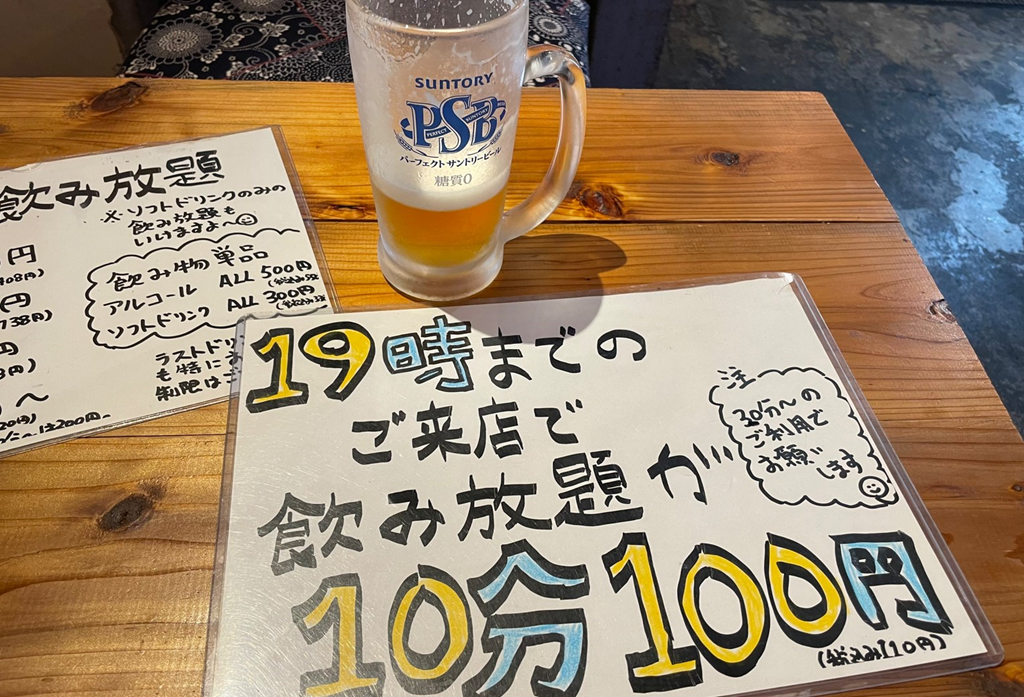 SUNTORY
PSB
PERFECT SUNTORY
パーフェクトサントリービール
糖質0
飲み放題
※ソフトドリンクのみの
飲み放題も
いけますよ〜
円
円
738円)
飲み物単品
アルコール ALL 500円
ソフトドリンク ALL 300円
ラストドリ
も特に
制限は
19時までの
ご来店で
飲み放題が
10分100円
(税込み110円)
注
30分〜の
ご利用で
お願い
します